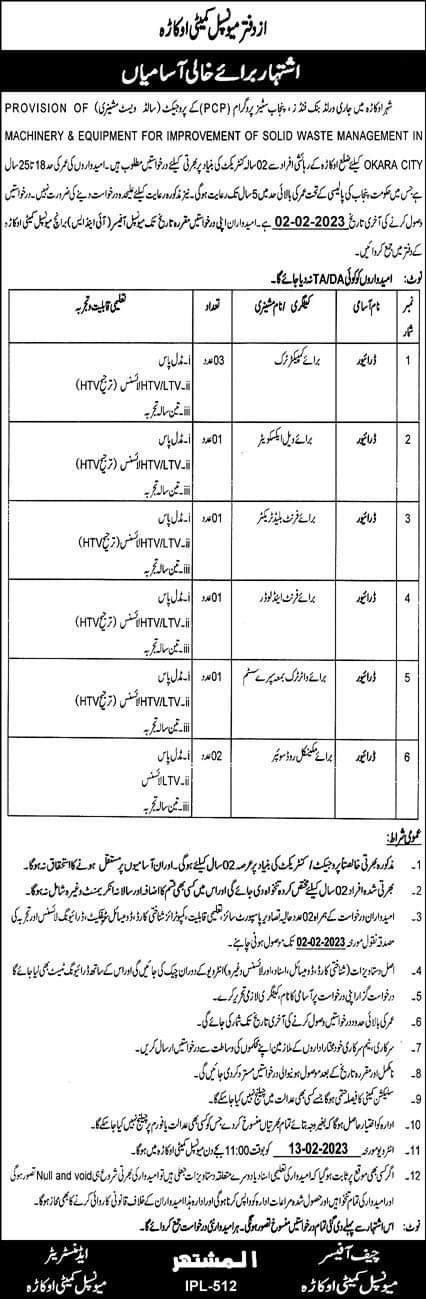 از دفتر میونسپل کمیٹی اوکاڑہ
اشتہار برائے خالی آسامیاں
شہر اوکاڑہ میں جاری ورلڈ بنک فنڈز، پنجاب سٹیز پروگرام (PCP) کے پروجیکٹ (سالڈ ویسٹ مشینری) PROVISION OF
MACHINERY & EQUIPMENT FOR IMPROVEMENT OF SOLID WASTE MANAGEMENT IN
OKARA CITY کیلئے ضلع اوکاڑہ کے رہائشی افراد سے 02 سالہ کنٹریکٹ کی بنیاد پر بھرتی کیلئے درخواستیں مطلوب ہیں۔ امیدواروں کی عمر کی حد 18 تا 25 سال
ہے جس میں حکومت پنجاب کی پالیسی کے تحت عمر کی بالائی حد میں 5 سال تک رعایت ہوگی۔ نیز مذکورہ رعایت کیلئے علیحدہ درخواست دینے کی ضرورت نہیں۔ درخواستیں
وصول کرنے کی آخری تاریخ 02-02-2023 ہے۔ امیدواران اپنی درخواستیں مقررہ تاریخ تک میونسپل آفیسر (آئی اینڈ ایس) برانچ میونسپل کمیٹی اوکاڑہ
کے دفتر میں جمع کروائیں۔
نوٹ: امیدواروں کو کوئی TA/DA نہ دیا جائے گا۔
نمبر شمار نام آسامی کیٹگری / نام مشینری تعداد تعلیمی قابلیت و تجربہ
1 ڈرائیور برائے کمپیکٹر ٹرک 03 عدد i۔ مڈل پاس
ii۔ HTV/LTV لائسنس (ترجیح HTV)
iii۔ تین سالہ تجربہ
2 ڈرائیور برائے وہیل ایکسکویٹر 01 عدد i۔ مڈل پاس
ii۔ HTV/LTV لائسنس (ترجیح HTV)
iii۔ تین سالہ تجربہ
3 ڈرائیور برائے فرنٹ بلیڈ ٹریکٹر 01 عدد i۔ مڈل پاس
ii۔ HTV/LTV لائسنس (ترجیح HTV)
iii۔ تین سالہ تجربہ
4 ڈرائیور برائے فرنٹ اینڈ لوڈر 01 عدد i۔ مڈل پاس
ii۔ HTV/LTV لائسنس (ترجیح HTV)
iii۔ تین سالہ تجربہ
5 ڈرائیور برائے واٹر ٹرک بمعہ سپرے سسٹم 01 عدد i۔ مڈل پاس
ii۔ HTV/LTV لائسنس (ترجیح HTV)
iii۔ تین سالہ تجربہ
6 ڈرائیور برائے مکینیکل روڈ سویپر 02 عدد i۔ مڈل پاس
ii۔ LTV لائسنس
iii۔ تین سالہ تجربہ
عمومی شرائط:
1۔ مذکورہ بھرتی خالصتاً پروجیکٹ / کنٹریکٹ کی بنیاد پر عرصہ 02 سال کیلئے ہوگی۔ اور ان آسامیوں پر مستقل ہونے کا استحقاق نہ ہوگا۔
2۔ بھرتی شدہ افراد 02 سال کیلئے مختص کردہ تنخواہ دی جائے گی اور اس میں کسی بھی قسم کا اضافہ اور سالانہ انکریمنٹ وغیرہ شامل نہ ہوگا۔
3۔ امیدواران درخواست کے ہمراہ 02 عدد حالیہ تصاویر پاسپورٹ سائز، تعلیمی قابلیت، کمپوٹرائز شناختی کارڈ، ڈومیسائل سرٹیفکیٹ، ڈرائیونگ لائسنس اور تجربہ کی
مصدقہ نقول مورخہ 02-02-2023 تک موصول ہونی چاہئے۔
4۔ اصل دستاویزات (شناختی کارڈ، ڈومیسائل، اسناد، اور لائسنس وغیرہ) انٹرویو کے دوران چیک کی جائیں گی اور اس کے ساتھ ڈرائیونگ ٹیسٹ بھی لیا جائے گا
5۔ درخواست گزار اپنی درخواست پر آسامی کا نام، کیٹگری لازمی تحریر کرے۔
6۔ عمر کی بالائی حدود درخواستیں وصول کرنے کی آخری تاریخ تک شمار کی جائے گی۔
7۔ سرکاری، نیم سرکاری خود مختار اداروں کے ملازمین اپنے محکموں کی وساطت سے درخواستیں ارسال کریں۔
8۔ نامکمل اور مقررہ تاریخ کے بعد موصول ہونیوالی درخواستیں مسترد کر دی جائیں گی۔
9۔ سلیکشن کمیٹی کا فیصلہ حتمی ہوگا جسے کسی بھی عدالت میں چیلنج نہیں کیا جا سکے گا۔
10۔ ادارہ کو اختیار حاصل ہوگا کہ بغیر وجہ بتائے تمام بھرتیاں منسوخ کر دے جس کو کسی بھی عدالت یا فورم پر چیلنج نہیں کیا جا سکے گا۔
11۔ انٹرویو مورخہ 13-02-2023 کو بوقت 11:00 بجے دن میونسپل کمیٹی اوکاڑہ میں ہوگا۔
12۔ اگر کسی بھی موقع پر ثابت ہو گیا کہ امیدوار کی تعلیمی اسناد یا دوسرے متعلقہ دستاویزات جعلی ہیں تو امیدوار کی بھرتی شروع ہی Null and void تصور ہوگی
اور امیدوار کی تمام تنخواہیں اور حصول شدہ مراعات ادارہ کو واپس کرنا ہوگی اور ادارہ ہذا امیدواران کے خلاف قانونی کاروائی کرنے کا بھی مجاز ہوگا۔
نوٹ: اس اشتہار سے پہلے دی گئی تمام درخواستیں منسوخ تصور ہوگی۔ ہر امیدوار نئی درخواست جمع کروائے گا۔
چیف آفیسر المشتہر ایڈمنسٹریٹر
میونسپل کمیٹی اوکاڑہ IPL-512 میونسپل کمیٹی اوکاڑہ